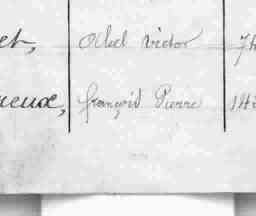 et, Abel Victor 74
reux, françois Pierre 14